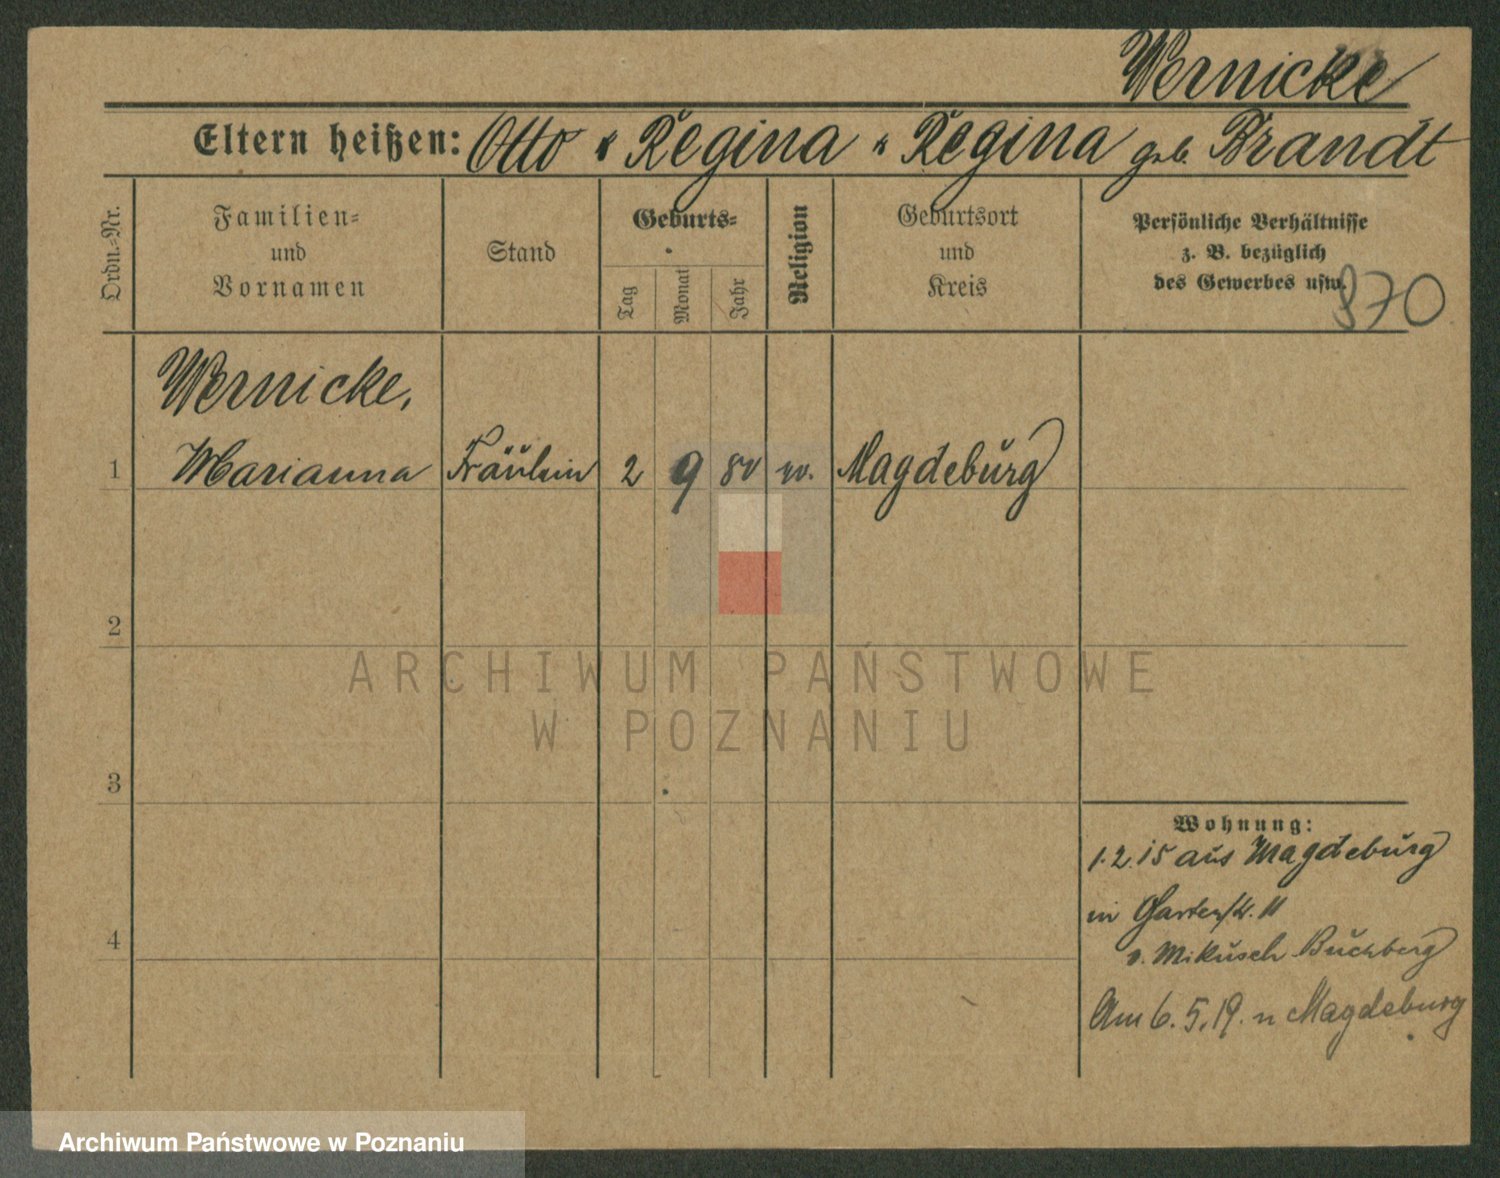 Wernicke
Eltern heißen: Otto u Regina u Regina geb. Brandt
Ordn.-Nr.
Familien-
und
Vornamen
Stand
Geburts-
Tag
Monat
Jahr
Religion
Geburtsort
und
Kreis
Persönliche Verhältnisse
z. B. bezüglich
des Gewerbes usw.
870
Wernicke,
1 Marianna Fräulein 2 9 80 Magdeburg
2
3
4
Wohnung:
1.2.15 aus Magdeburg
in Gartenstr. 11
v. Mikusch Buchberg
Am 6.5.19. n Magdeburg
ARCHIWUM PAŃSTWOWE
W POZNANIU
Archiwum Państwowe w Poznaniu